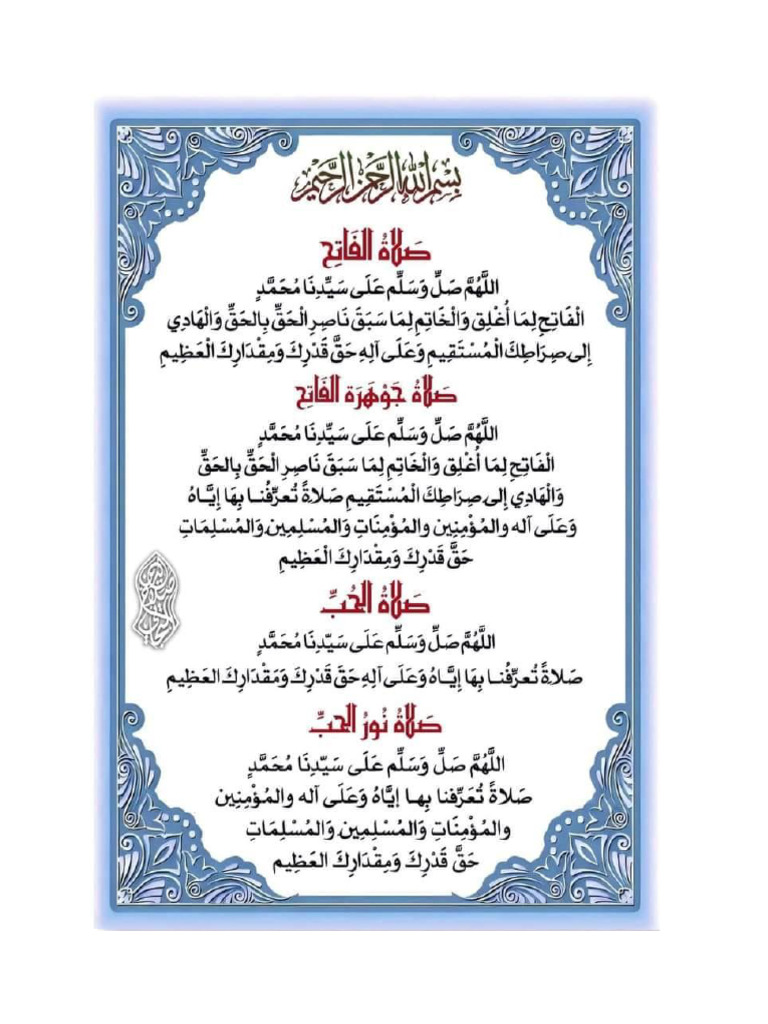 بِسْمِ اللهِ الرَّحْمٰنِ الرَّحِيْمِ
صَلاةُ الفَاتِحِ
اللَّهُمَّ صَلِّ وَسَلِّم عَلَى سَيِّدِنَا مُحَمَّدٍ
الْفَاتِحِ لِمَا أُغْلِق وَالْخَاتِمِ لِمَا سَبَقَ نَاصِرِ الْحَقِّ بِالحَقِّ وَالْهَادِي
إِلى صِرَاطِكَ الْمُسْتَقِيمِ وَعَلَى آلِهِ حَقَّ قَدْرِكَ وَمِقْدَارِكَ الْعَظِيمِ
صَلاةُ جَوْهَرَة الفَاتِحِ
اللَّهُمَّ صَلِّ وَسَلِّم عَلَى سَيِّدِنَا مُحَمَّدٍ
الْفَاتِحِ لِمَا أُغْلِق وَالْخَاتِمِ لِمَا سَبَقَ نَاصِرِ الْحَقِّ بِالحَقِّ
وَالْهَادِي إِلى صِرَاطِكَ الْمُسْتَقِيمِ صَلاةً تُعرِّفُنا بِهَا إِيَّاهُ
وَعَلَى آله والمُؤْمِنِين والمُؤْمِنَاتِ وَالمُسْلِمِين وَالمُسْلِمَاتِ
حَقَّ قَدْرِكَ وَمِقْدَارِكَ الْعَظِيمِ
صَلاةُ الحُبِّ
اللَّهُمَّ صَلِّ وَسَلِّم عَلَى سَيِّدِنَا مُحَمَّدٍ
صَلاةً تُعرِّفُنا بِهَا إِيَّاهُ وَعَلَى آلِهِ حَقَ قَدْرِكَ وَمَقْدَارِكَ العَظِيمِ
صَلاةُ نُورُ الحبِّ
اللَّهُمَّ صَلِّ وَسَلِّم عَلَى سَيّدِنَا مُحَمَّدٍ
صَلاةً تُعَرِّفنا بِها إِيَّاهُ وَعَلَى آله والمُؤْمِنِين
والمُؤْمِنَاتِ وَالمُسْلِمِين وَالمُسْلِمَاتِ
حَقَّ قَدْرِكَ وَمِقْدَارِكَ العَظِيمِ